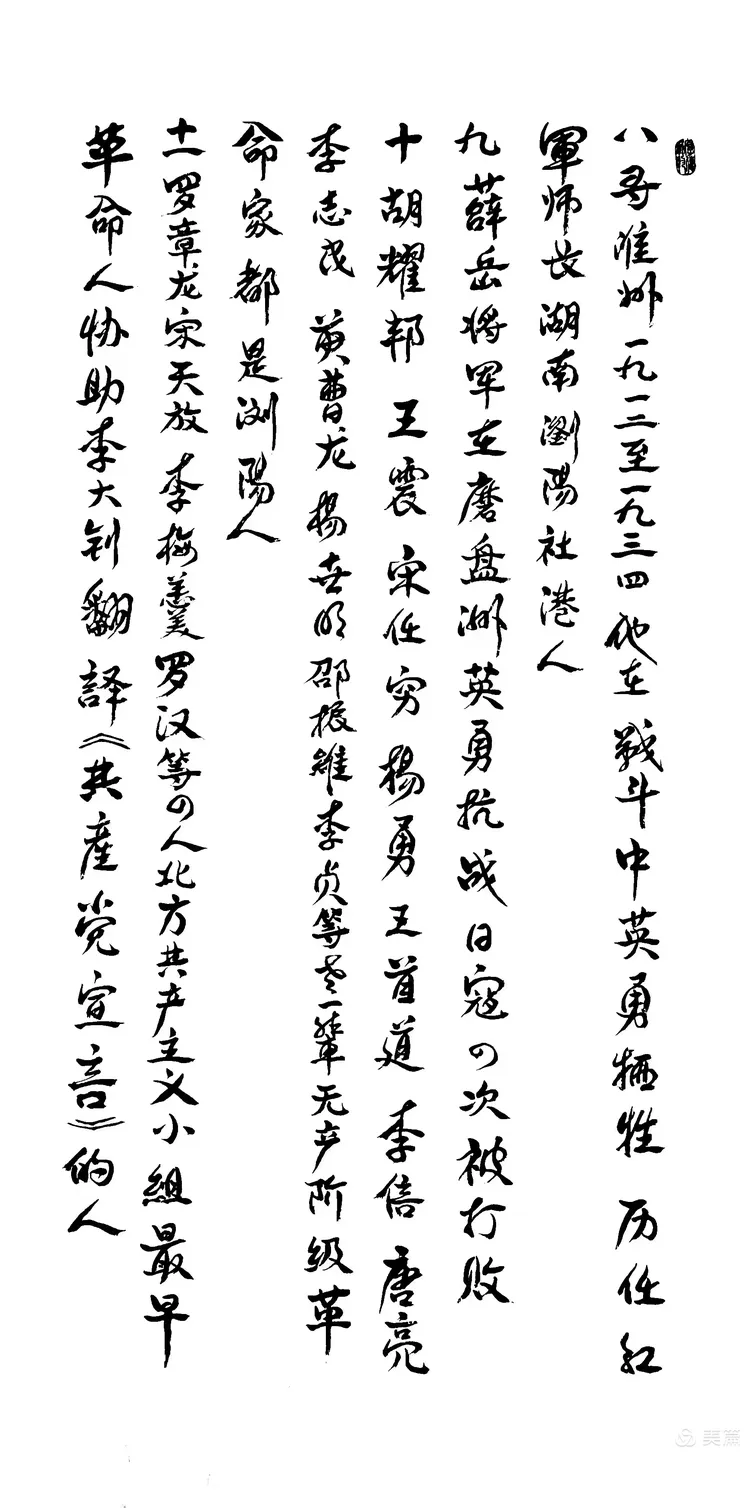 八寻淮洲一九一二至一九三四他在戰斗中英勇牺牲 历任红
軍师长湖南瀏陽社港人
九薛岳将军在磨盘洲英勇抗战日寇四次被打败
十胡耀邦 王震 宋任穷 杨勇 王首道 李信 唐亮
李志民 黄曹龙 楊世明 邵振維 李贞等老一輩无产阶级革
命家都是浏陽人
十一罗章龙 宋天放 李梅羹 罗汉等四人北方共产主义小組最早
革命人协助李大钊翻譯《共產党宣言》的人
美篇